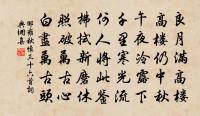 良月滿高樓
高樓仍中秋
午夜冷露下
千里寒光流
何人將此鑒
拂拭新磨休
照破萬古心
白盡萬古頭
邵雍秋懷三十六首詞
典網集